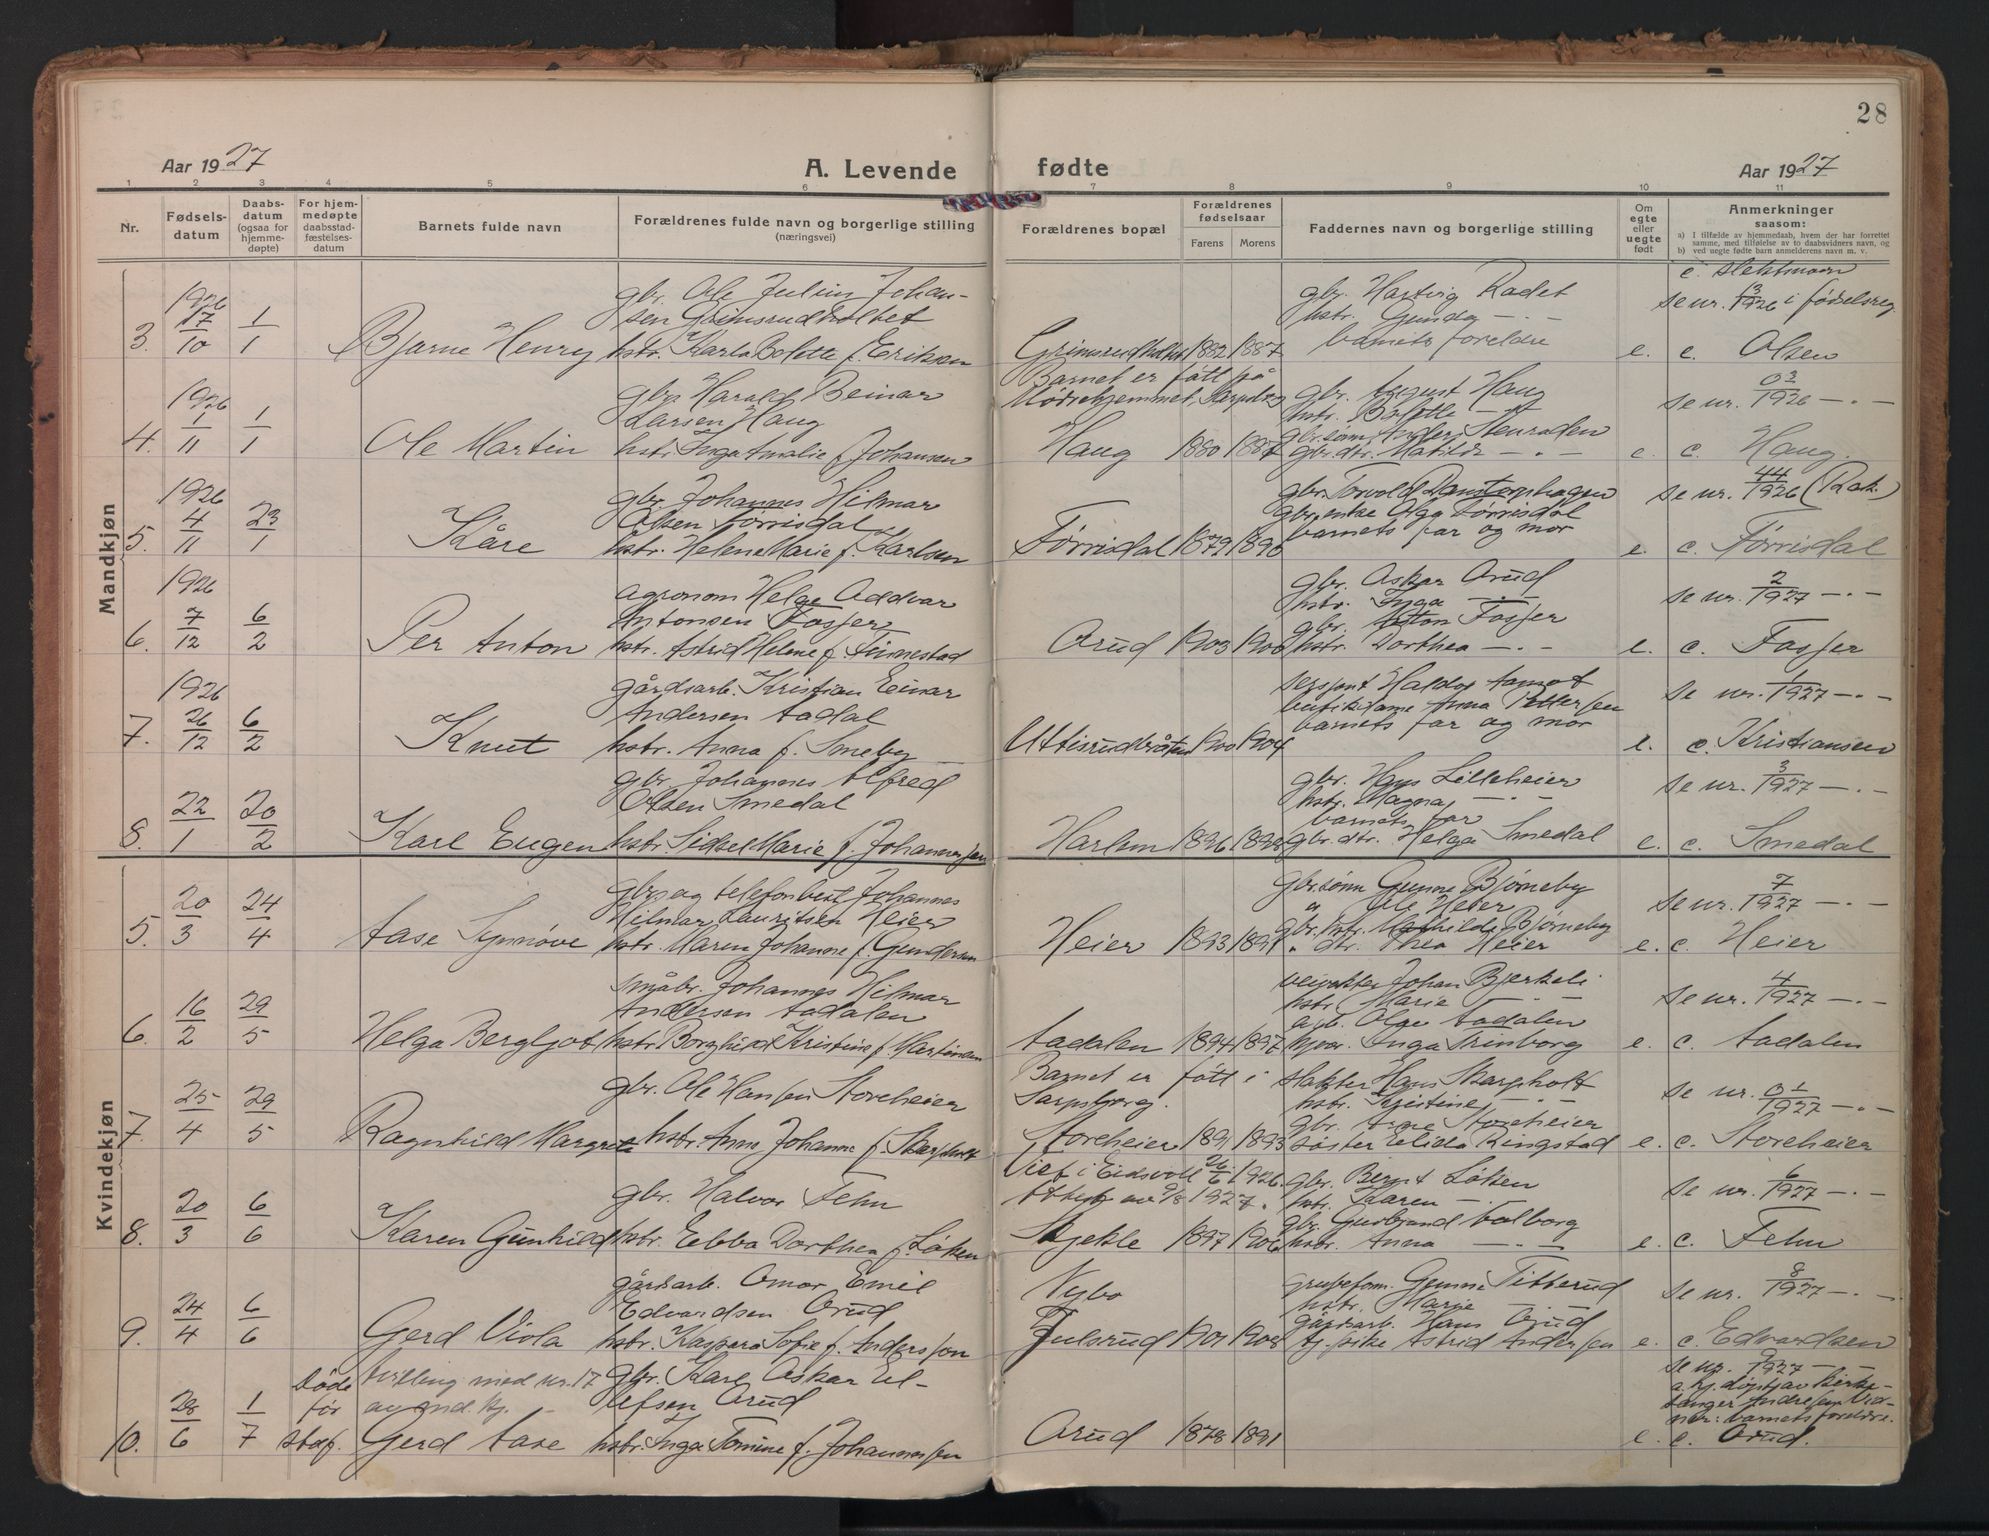 28
Aar 1927
A. Levende
fødte
Aar 1927
1 2 3 4 5 6 7 8 9 10 11
Nr.
Fødsels-
datum
Daabs-
datum
(ogsaa for
hjemme-
døpte)
For hjem-
medøpte
daabsstad-
fæstelses-
datum
Barnets fulde navn
Forældrenes fulde navn og borgerlige stilling
(næringsvei)
Forældrenes bopæl
Forældrenes
fødselsaar
Farens Morens
Faddernes navn og borgerlige stilling
Om
egte
eller
uegte
født
Anmerkninger
saasom:
a) I tilfælde av hjemmedaab, hvem der har forrettet
samme, med tilføielse av to daabsvidners navn, og
b) ved uegte fødte barn anmelderens navn m. v.
Mandkjøn
3. 1926 17/10 1/1
Bjarne Henry
gbr. Ole Julius Johan-
sen Grimsrudholtet
hstr. Karla Bolette f. Eriksen
1882 1887
gbr. Hartvig Radet
hstr. Gunda — " —
barnets foreldre
e.
se nr. 13/1926 i fødselsreg.
c. Olsen
4. 1926 1/11 1/1
Ole Martin
gbr. Harald Beinar
Larsen Haug
hstr. Inga Amalie f. Johansen
Barnet er født på
Haug 1880 1887
gbr. August Haug
hstr. Bolette — " —
gbr.dtr. Matilde — " —
e.
se nr. 03/1926 — " —
c. Haug.
5. 1926 4/11 23/1
Kåre
gbr. Johannes Hilmar
Olsen Tørrisdal
hstr. Helene Marie f. Karlsen
Tørrisdal 1879 1890
gbr. Torvald
gbr. enke Olga Tørrisdal
barnets far og mor
e.
se nr. 44/1926 (Rak.)
c. Tørrisdal
6. 1926 7/12 6/2
Per Anton
agronom Helge Oddvar
Antonsen Fosser
hstr. Astrid Helene f. Finnestad
Orud 1903 1906
gbr. Oskar Orud
hstr. Inga — " —
gbr. Anton Fosser
hstr. Dorthea — " —
e.
se nr. 2/1927 — " —
c. Fosser
7. 1926 26/12 6/2
Knut
gårdsarb. Kristian Einar
Andersen Aadal
hstr. Anna f. Smeby
1900 1904
butikdame Anna Pettersen
barnets far og mor
e.
se nr. 1/1927 — " —
c. Kristiansen
8. 22/1 20/2
Karl Eugen
gbr. Johannes Alfred
Olsen Smedal
hstr. Sidsel Marie f. Johannessen
1896 1898
gbr. Hans Lilleheier
hstr. Magna — " —
barnets far
gbr. dtr. Helga Smedal
e.
se nr. 3/1927 — " —
c. Smedal
Kvindekjøn
5. 20/3 24/4
Aase Synnøve
gbr. og telefonbest. Johannes
Hilmar Lauritsen Heier
hstr. Maren Johanne f. Gundersen
Heier 1893 1891
gbr.sønn Gunnar Bjørneby
" Ole Heier
gbr. hstr. Mathilde Bjørneby
" dtr. Thea Heier
e.
se nr. 7/1927 — " —
c. Heier
6. 16/2 29/5
Helga Bergljot
småbr. Johannes Hilmar
Andersen Aadalen
hstr. Borghild Kristine f. Martinsen
Aadalen 1894 1897
veivokter Johan Bjerkeli
hstr. Marie — " —
arb. Olge Aadalen
e.
se nr. 4/1927 — " —
c. Aadalen
7. 25/4 29/5
Ragnhild Margrete
gbr. Ole Hansen Storeheier
hstr. Anna Johanne f. Skarpholt
Barnet er født i
Sarpsborg.
Storeheier 1891 1893
slakter Hans Skarpholt
hstr. Kristine — " —
gbr. Arne Storeheier
søster Elida Ringstad
e.
se nr. 01/1927 — " —
c. Storeheier
8. 20/3 6/6
Karen Gunhild
gbr. Halvor Fehn
hstr. Ebba Dorthea f. Løken
Viet i Eidsvoll 26/6 1926.
Skjekle 1897 1906
gbr. Bernt Løken
hstr. Karen — " —
gbr. Gudbrand Valborg
hstr. Anna — " —
e.
se nr. 6/1927 — " —
c. Fehn
9. 24/4 6/6
Gerd Viola
gårdsarb. Omar Emil
Edvardsen Orud
hstr. Kaspara Sofie f. Anderssen
Nybo
Julsrud 1901 1908
grubeform. Gunnar Titterud
hstr. Marie — " —
gårdsarb. Hans Orud
tj.pike Astrid Anderssen
e.
se nr. 8/1927 — " —
c. Edvardsen
10. 28/6 1/7
Døde
før
stadf.
tvilling med nr. 17
av md. kj.
Gerd Aase
gbr. Karl Oskar El-
lefsen Orud
hstr. Inga Tomine f. Johannessen
Orud 1878 1891
e.
se nr. 9/1927 —
a. hj. døpt av kirke-
sanger Andressen. Vid-
ner: barnets foreldre.
c. Orud.